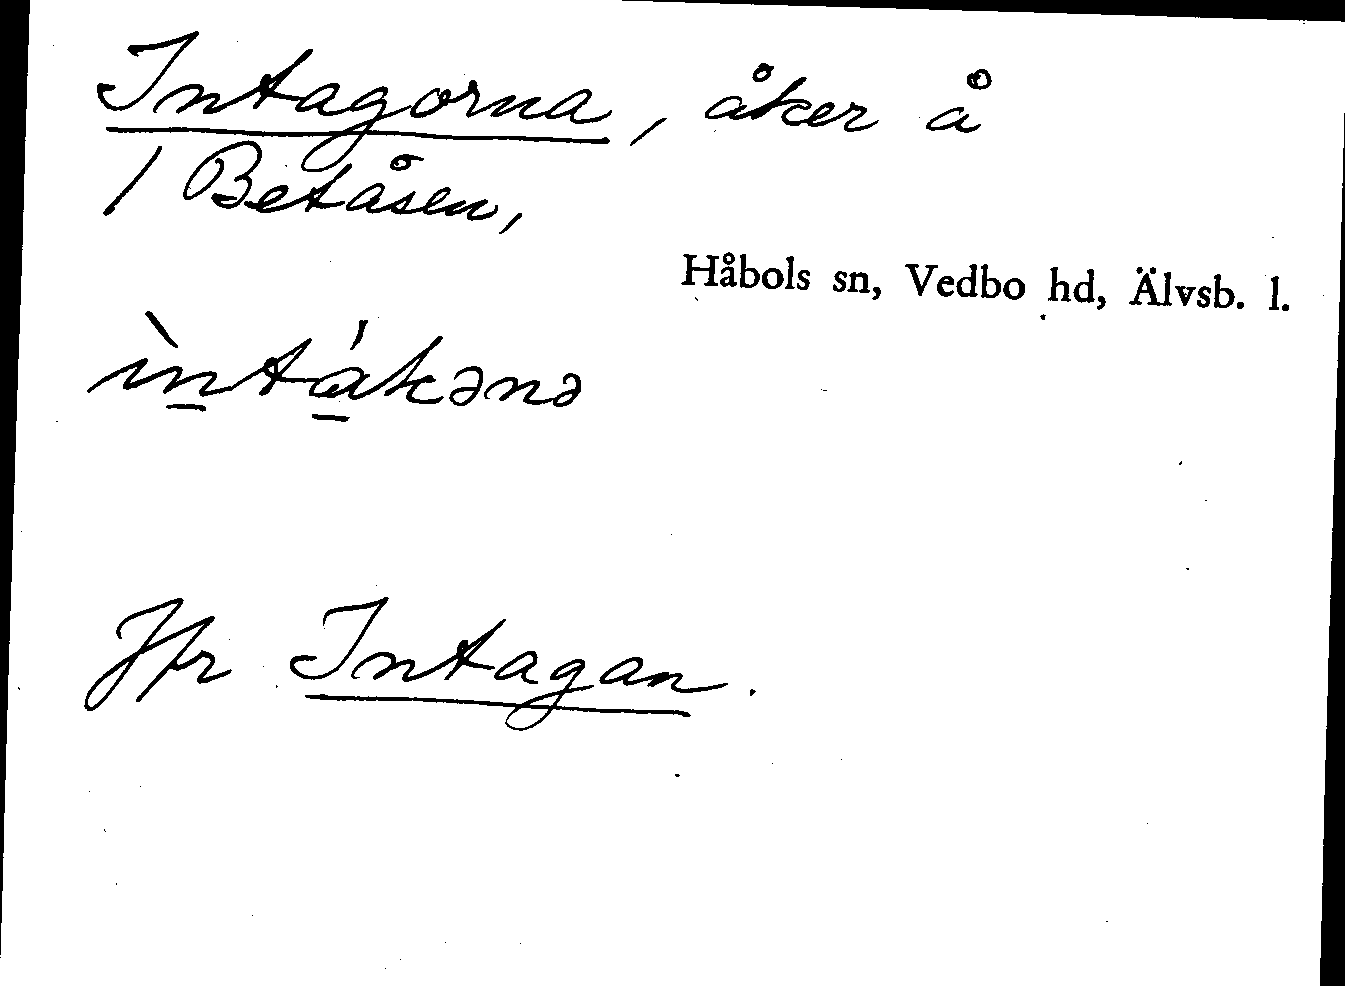 Intagorna, åker å
1 Betåsen,
Håbols sn, Vedbo hd, Älvsb. l.
ìn̲tá̲kənə
Jfr Intagan.